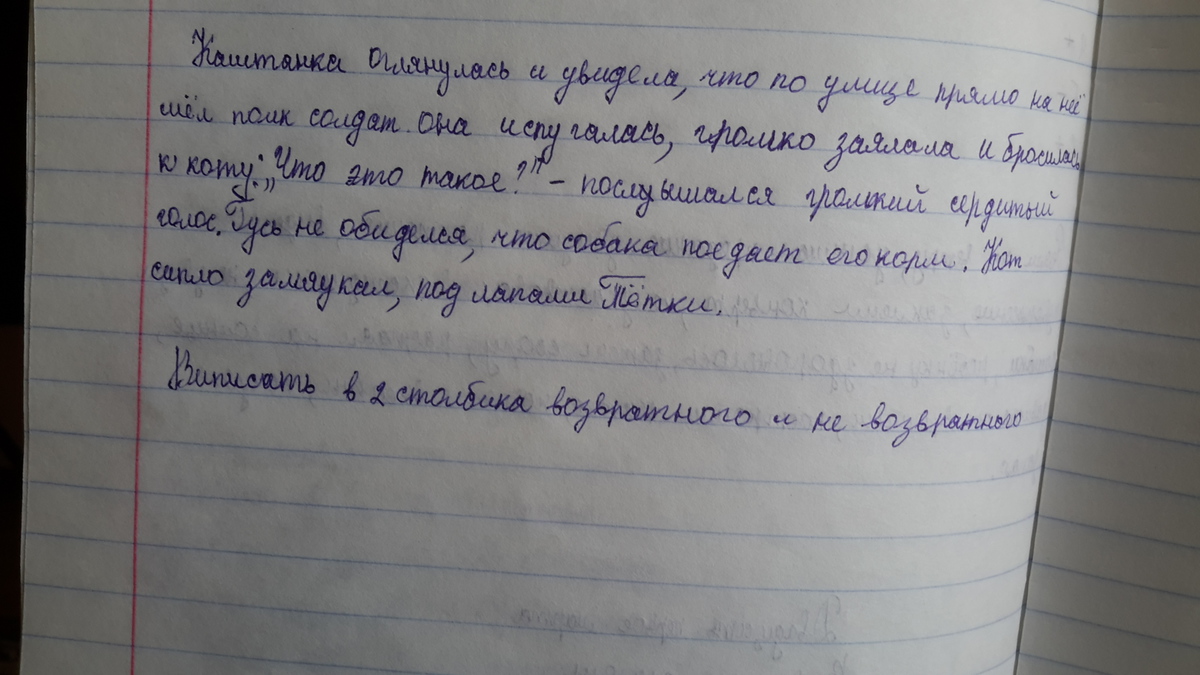 Каштанка оглянулась и увидела, что по улице прямо на неё
шёл полк солдат. она испугалась, громко заялала и бросилась
к коту. „Что это такое?" – послушался громкий сердитый
голос. Гусь не обиделся, что собака поедает его корм. Кот
сипло замяукал, под лапами Тётки.
Виписать в 2 столбика возвратного и не возвратного